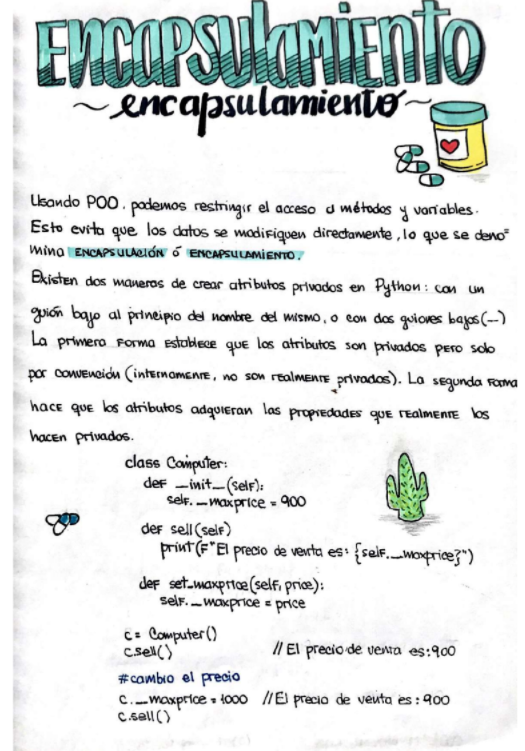 ENCAPSULAMIENTO
~encapsulamiento~
Usando POO, podemos restringir el acceso a métodos y variables.
Esto evita que los datos se modifiquen directamente, lo que se deno=
mina ENCAPSULACIÓN ó ENCAPSULAMIENTO.
Existen dos maneras de crear atributos privados en Python: con un
guión bajo al principio del nombre del mismo, o con dos guiones bajos(--)
La primera forma establece que los atributos son privados pero solo
por convención (internamente, no son realmente privados). La segunda forma
hace que los atributos adquieran las propiedades que realmente los
hacen privados.
class Computer:
def __init__(self):
self.__maxprice = 900
def sell(self)
print(F"El precio de venta es: {self.__maxprice}")
def set_maxprice(self, price):
self.__maxprice = price
c = Computer()
c.sell() // El precio de venta es:900
#cambio el precio
c.__maxprice = 1000 //El precio de venta es: 900
c.sell()